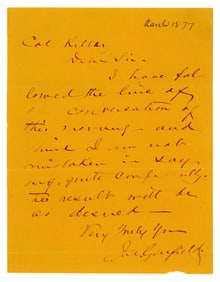 March 18 77
Col Keller
Dear Sir -
I have fol-
lowed the line of
conversation of
this morning - and
think I am not
mistaken in say-
ing, quite
result will be
as desired -
Very truly Yours